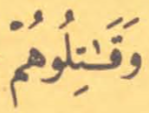 وَقَٰتِلُوهُمْ